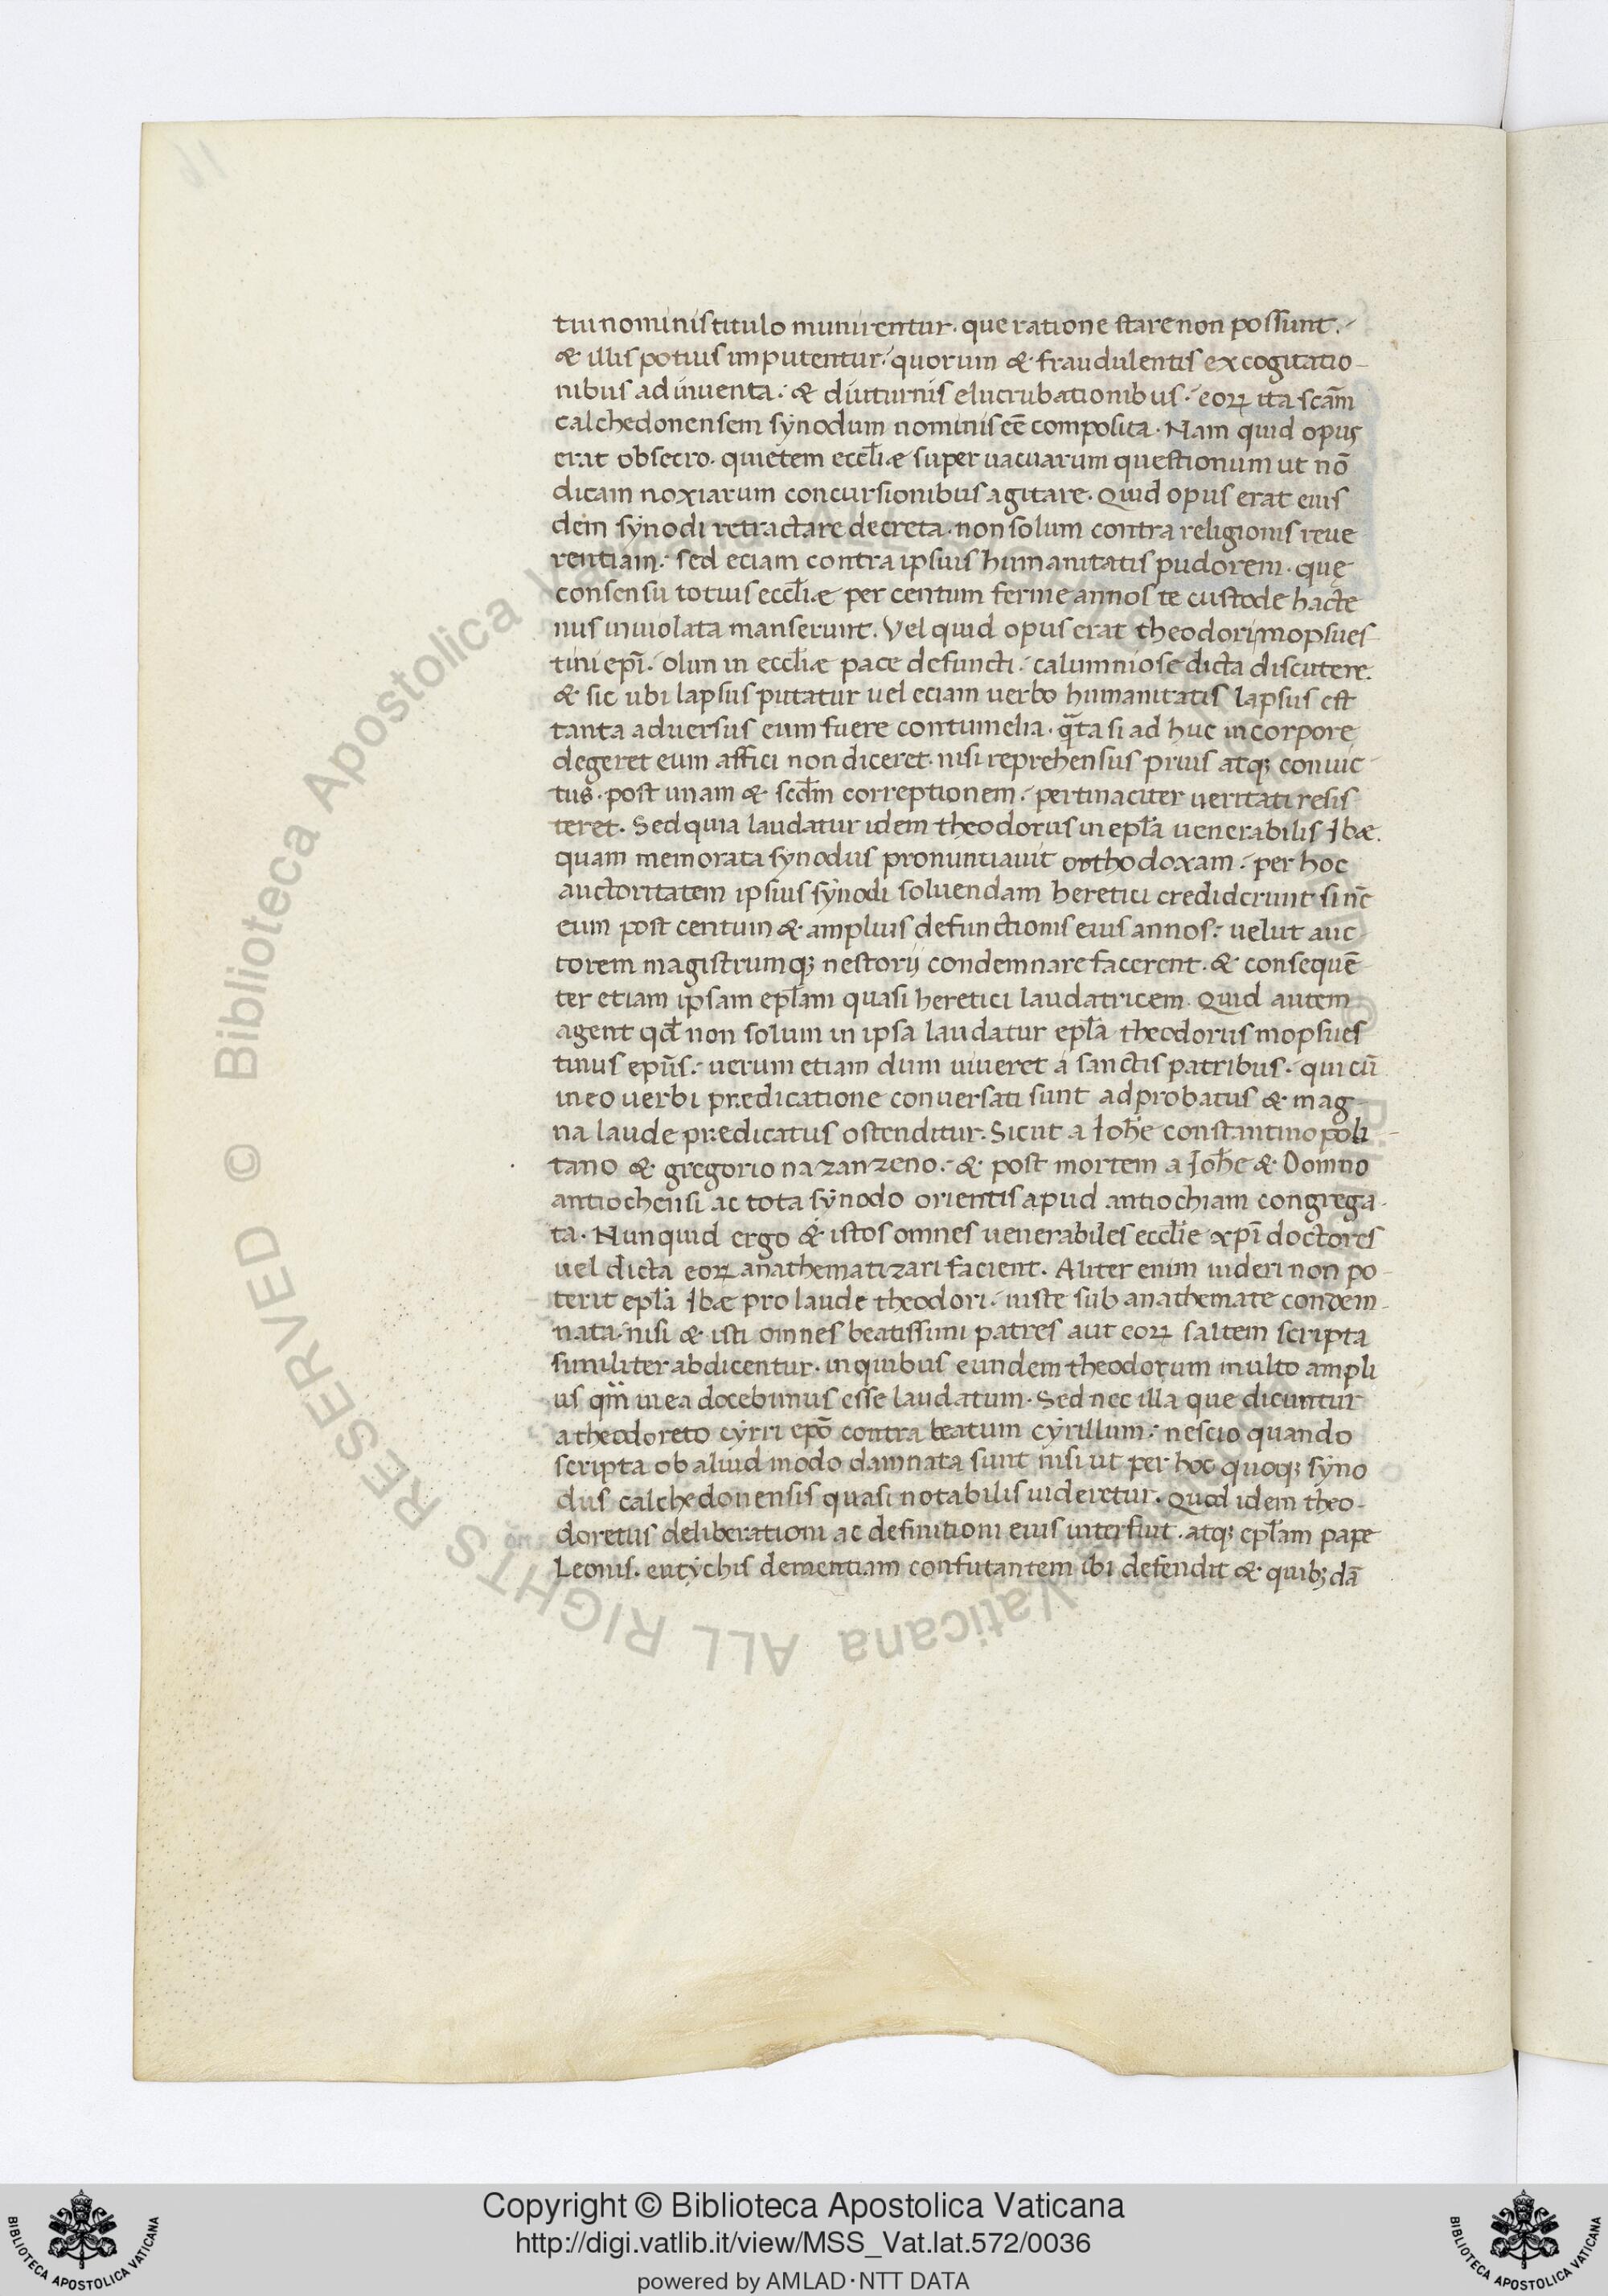 tui nominis titulo munirentur. que ratione stare non possunt.
& illis potius imputentur. quorum & fraudulentis excogitatio-
nibus adinventa. & diuturnis elucrubationibus. eoꝝ ita scām
calchedonensem synodum nominis eē composita. Nam quid opus
erat obsecro. quietem eccl̄iæ super vacuarum questionum ut nō
dicam noxiarum concursionibus agitare. Quid opus erat eius
dem synodi retractare decreta. non solum contra religionis reve
rentiam. sed eciam contra ipsius humanitatis pudorem. quę
consensu totius eccl̄iæ per centum ferme annos te custode hacte
nus inviolata manserunt. Vel quid opus erat theodori mopsues
tini epī. olim in eccl̄iæ pace defuncti. calumniose dicta discutere.
& sic ubi lapsus putatur vel eciam verbo humanitatis lapsus est
tanta adversus eum fuere contumelia. q̄ta si ad huc in corpore
degeret eum affici non diceret. nisi reprehensus prius atq; convic
tus. post unam & scd̄m correptionem. pertinaciter veritati resis
teret. Sed quia laudatur idem theodorus in epl̄a venerabilis Ibæ.
quam memorata synodus pronuntiavit orthodoxam. per hoc
auctoritatem ipsius synodi soluendam heretici crediderunt si nc̄
eum post centum & amplius defunctionis eius annos. uelut auc
torem magistrumq; nestorij condemnare facerent. & consequē
ter etiam ipsam epl̄am quasi heretici laudatricem. Quid autem
agent qd̄ non solum in ipsa laudatur epl̄a theodorus mopsues
tinus epūs. uerum etiam dum viveret a sanctis patribus. qui cū
in eo verbi prædicatione conversati sunt adprobatus & mag
na laude prædicatus ostenditur. Sicut a Joh̄e constantinopoli-
tano & gregorio nazanzeno. & post mortem a Joh̄e & Domno
antiochensi ac tota synodo orientis apud antiochiam congrega-
ta. Nunquid ergo & istos omnes venerabiles eccl̄ie xpī doctores
vel dicta eoꝝ anathematizari facient. Aliter enim videri non po-
terit epl̄a Ibæ pro laude theodori. iuste sub anathemate condem-
nata. nisi & isti omnes beatissimi patres aut eoꝝ saltem scripta
similiter abdicentur. in quibus eundem theodorum multo ampli
us qm̄ in ea docebimus esse laudatum. Sed nec illa que dicuntur
a theodoreto cyrri epō contra beatum cyrillum. nescio quando
scripta ob aliud modo damnata sunt nisi ut per hoc quoq; syno
dus calchedonensis quasi notabilis videretur. Quod idem theo-
doretus deliberationi ac definitioni eius interfuit. atq; epl̄am pape
Leonis. eutychis dementiam confutantem ibi defendit & quib; dā
© Biblioteca Apostolica Vaticana ALL RIGHTS RESERVED
Copyright © Biblioteca Apostolica Vaticana
http://digi.vatlib.it/view/MSS_Vat.lat.572/0036
powered by AMLAD·NTT DATA
BIBLIOTECA APOSTOLICA VATICANA
BIBLIOTECA APOSTOLICA VATICANA